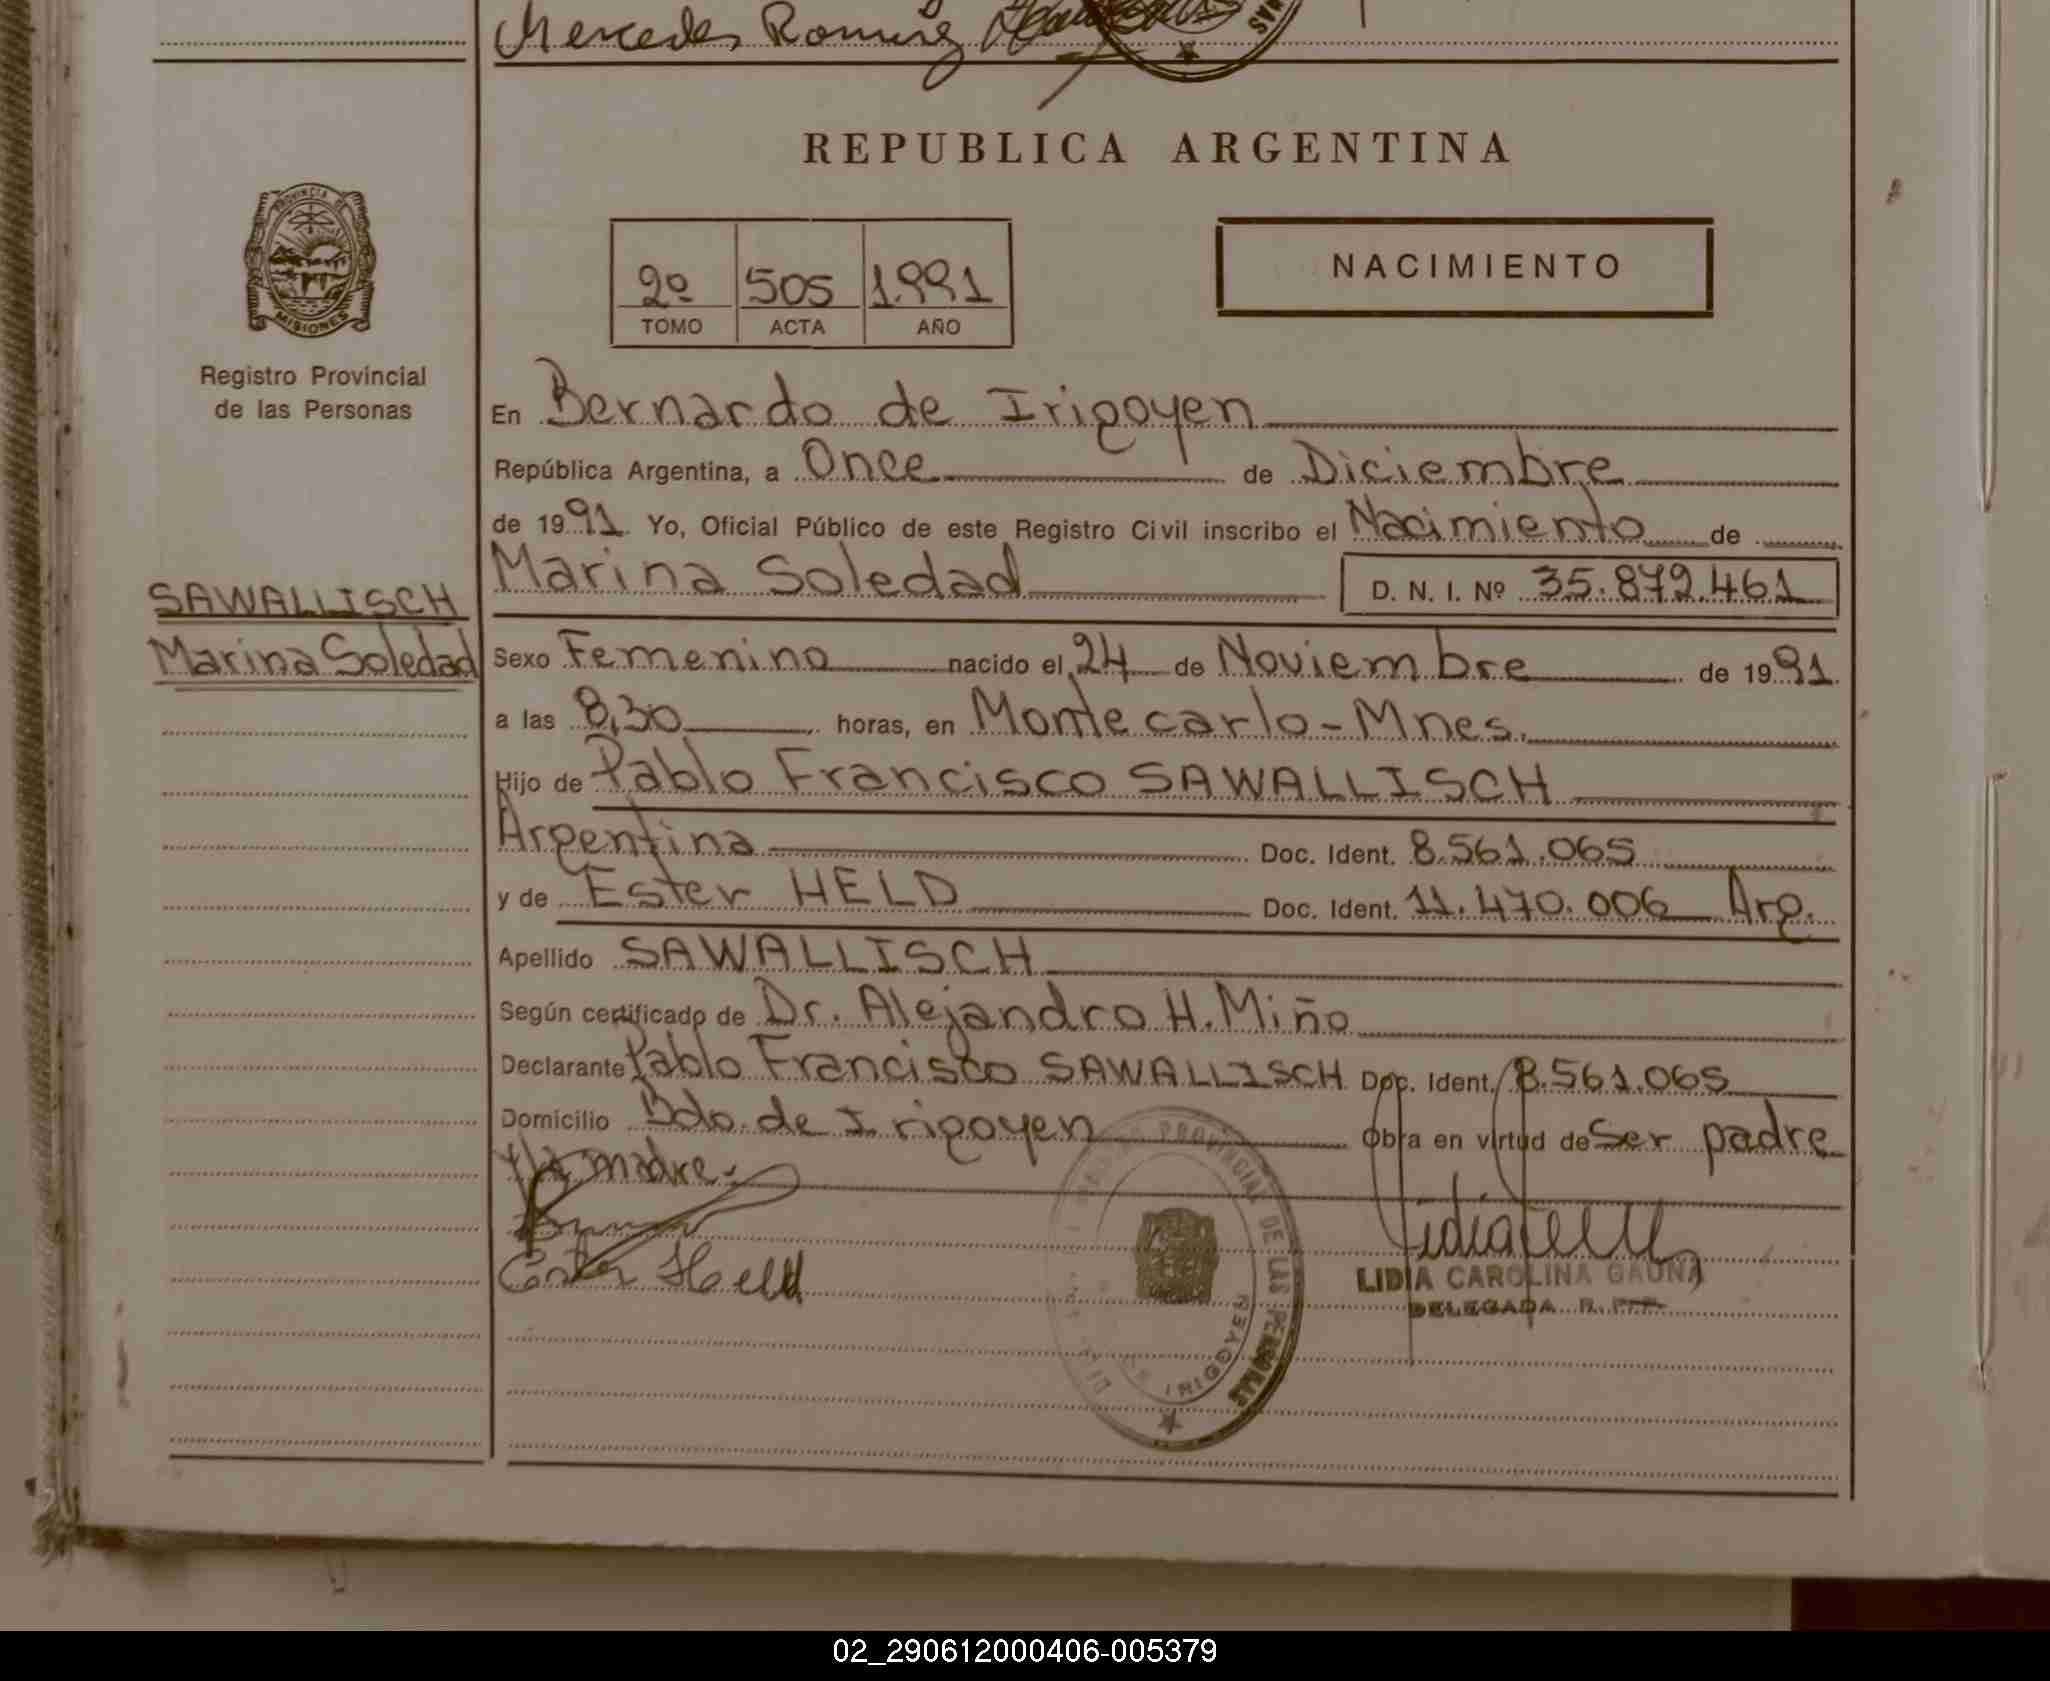 Mercedes Ramirez
REPUBLICA ARGENTINA
PROVINCIA DE
MISIONES
Registro Provincial
de las Personas
2º 505 1.991
TOMO ACTA AÑO
NACIMIENTO
En Bernardo de Irigoyen
República Argentina, a Once de Diciembre
de 1991 Yo, Oficial Público de este Registro Civil inscribo el Nacimiento de
Marina Soledad D. N. I. Nº 35.872.461
SAWALLISCH
Marina Soledad
Sexo Femenino nacido el 24 de Noviembre de 1991
a las 8,30 horas, en Montecarlo-Mnes.
Hijo de Pablo Francisco SAWALLISCH
Argentina Doc. Ident. 8.561.065
y de Ester HELD Doc. Ident. 11.470.006 Arg.
Apellido SAWALLISCH
Según certificado de Dr. Alejandro H. Miño
Declarante Pablo Francisco SAWALLISCH Doc. Ident. 8.561.065
Domicilio Bdo. de Irigoyen Obra en virtud de Ser padre
y la madre.-
Ester Held
PROVINCIAL DE LAS PERSONAS
IRIGOYEN
LIDIA CAROLINA GAUNA
DELEGADA R. P. P.
02_290612000406-005379